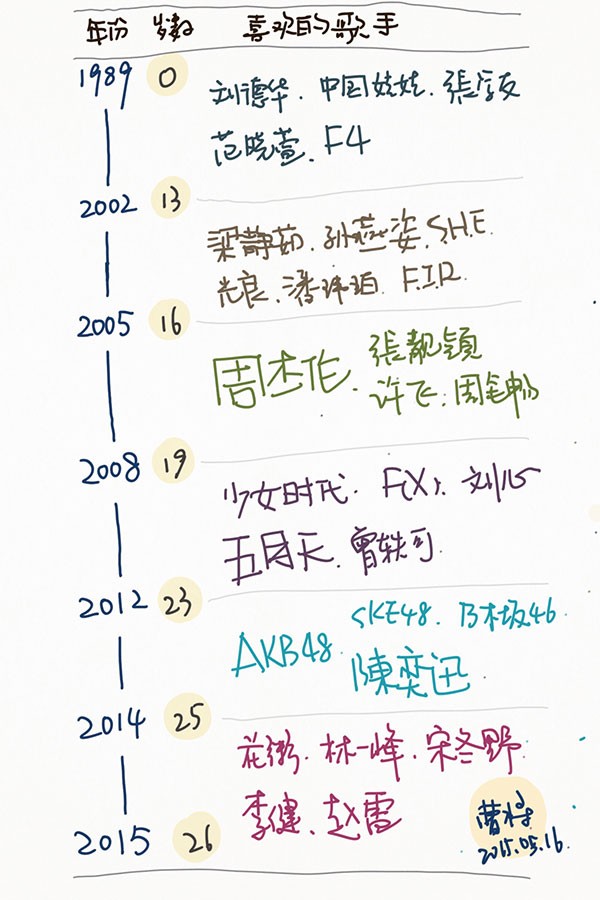 年份 岁数 喜欢的歌手
1989 0
刘德华. 中国娃娃. 張学友
范晓萱. F4
2002 13
梁静茹. 孙燕姿. S.H.E.
光良. 潘玮珀. F.I.R.
2005 16
周杰伦. 張靓颖
许飞. 周笔畅
2008 19
少女时代. F(X). 刘心
五月天. 曾轶可.
2012 23
AKB48. SKE48. 乃木坂46.
陳奕迅.
2014 25
花粥. 林一峰. 宋冬野.
李健. 赵雷
2015 26
曹
2015.05.16.